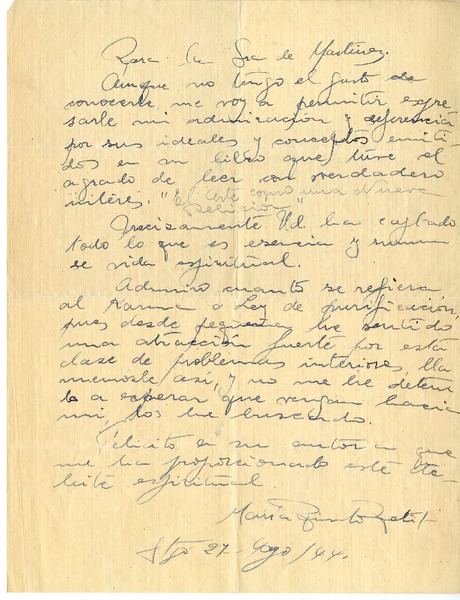 Para la Sra de Martínez.
Aunque no tengo el gusto de
conocerle, me voy a permitir expre
sarle mi admiración y deferencia
por sus ideales y conceptos emiti-
dos en su libro que tuve el
agrado de leer con verdadero
interés. "El Arte como una Nueva
Religión"
Precisamente Ud. ha captado
todo lo que es esencia y
se vida espiritual.
Admiro cuanto se refiera
al Karma o Ley de purificación,
pues desde pequeña he sentido
una atracción fuerte por esta
clase de problemas interiores, lla
memosle así, y no me he deteni
do a esperar que vengan hacia
mi, los he buscado.
Felicito a su autora que
me ha proporcionado este de-
leite espiritual.
María
Stgo 27- Ago/44.